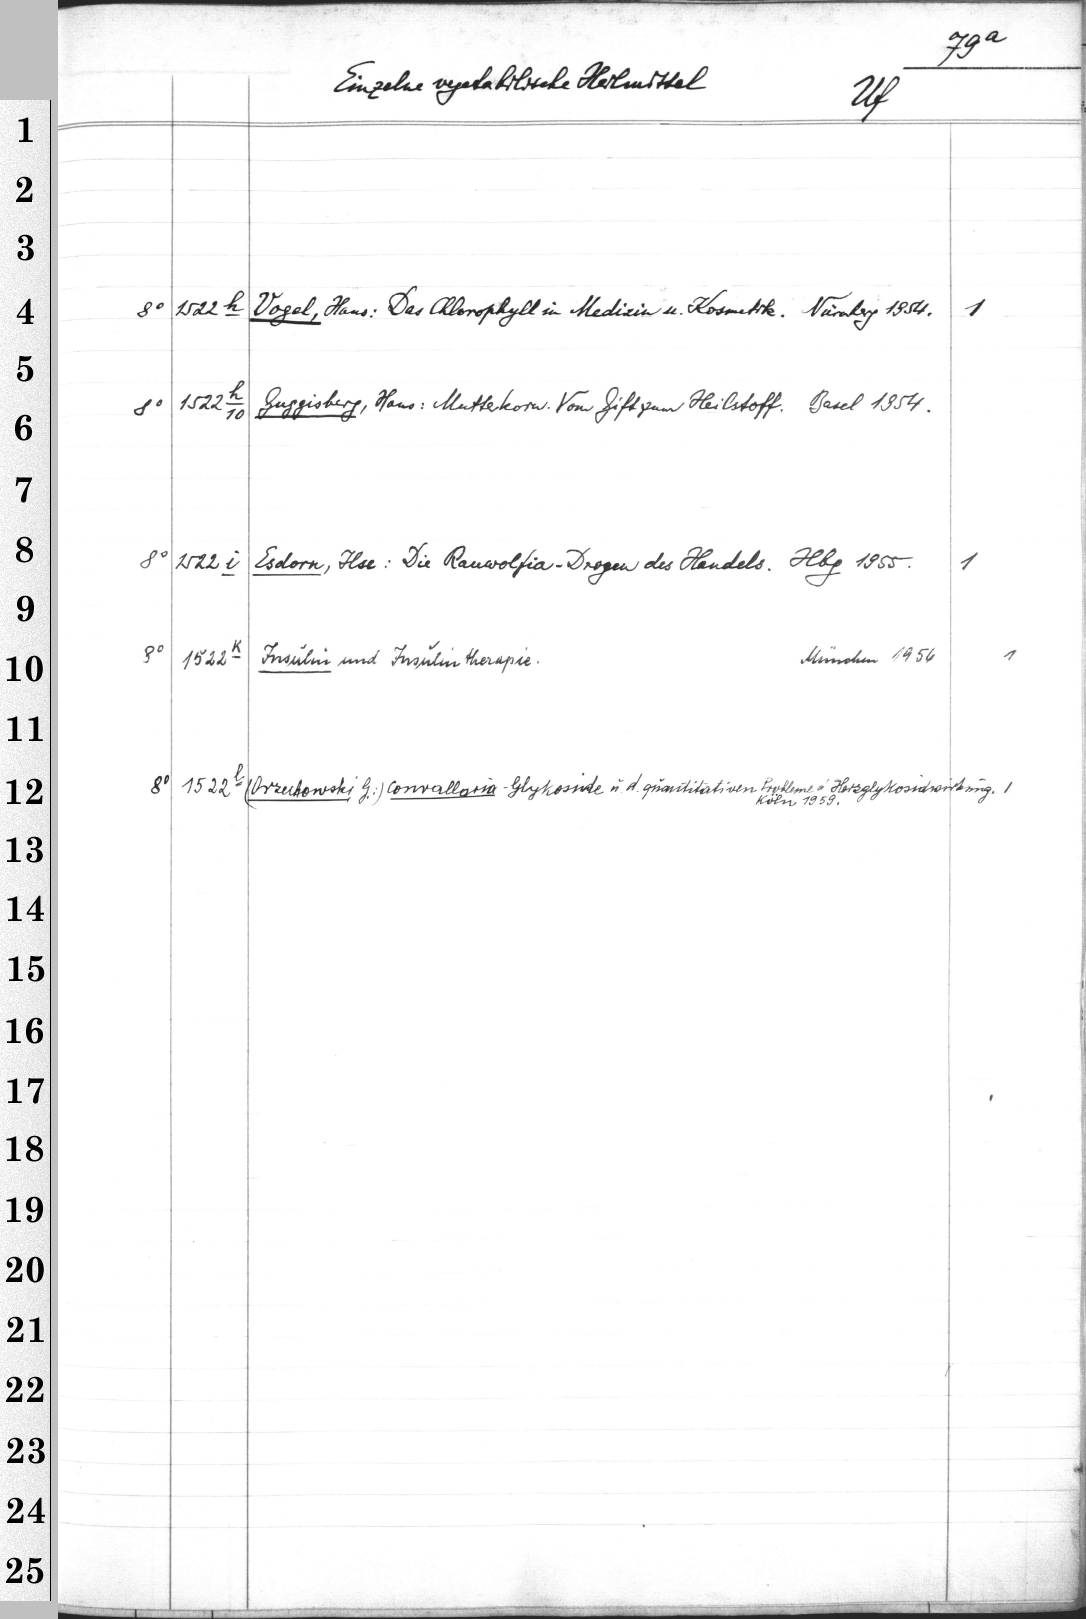 79a
Einzelne vegetabilische Heilmittel
Uf
1
2
3
4 8° 1522 h Vogel, Hans: Das Chlorophyll in Medizin u. Kosmetik. Nürnberg 1954. 1
5
6 8° 1522 h/10 Guggisberg, Hans: Mutterkorn. Vom Gift zum Heilstoff. Basel 1954.
7
8 8° 1522 i Esdorn, Ilse: Die Rauwolfia-Drogen des Handels. Hbg 1955. 1
9
10 8° 1522 K Insulin und Insulintherapie. München 1956 1
11
12 8° 1522 l (Orzechowski G.:) Convallaria-Glykoside u. d. quantitativen Probleme d. Herzglykosidwirkung. 1
Köln 1959.
13
14
15
16
17
18
19
20
21
22
23
24
25